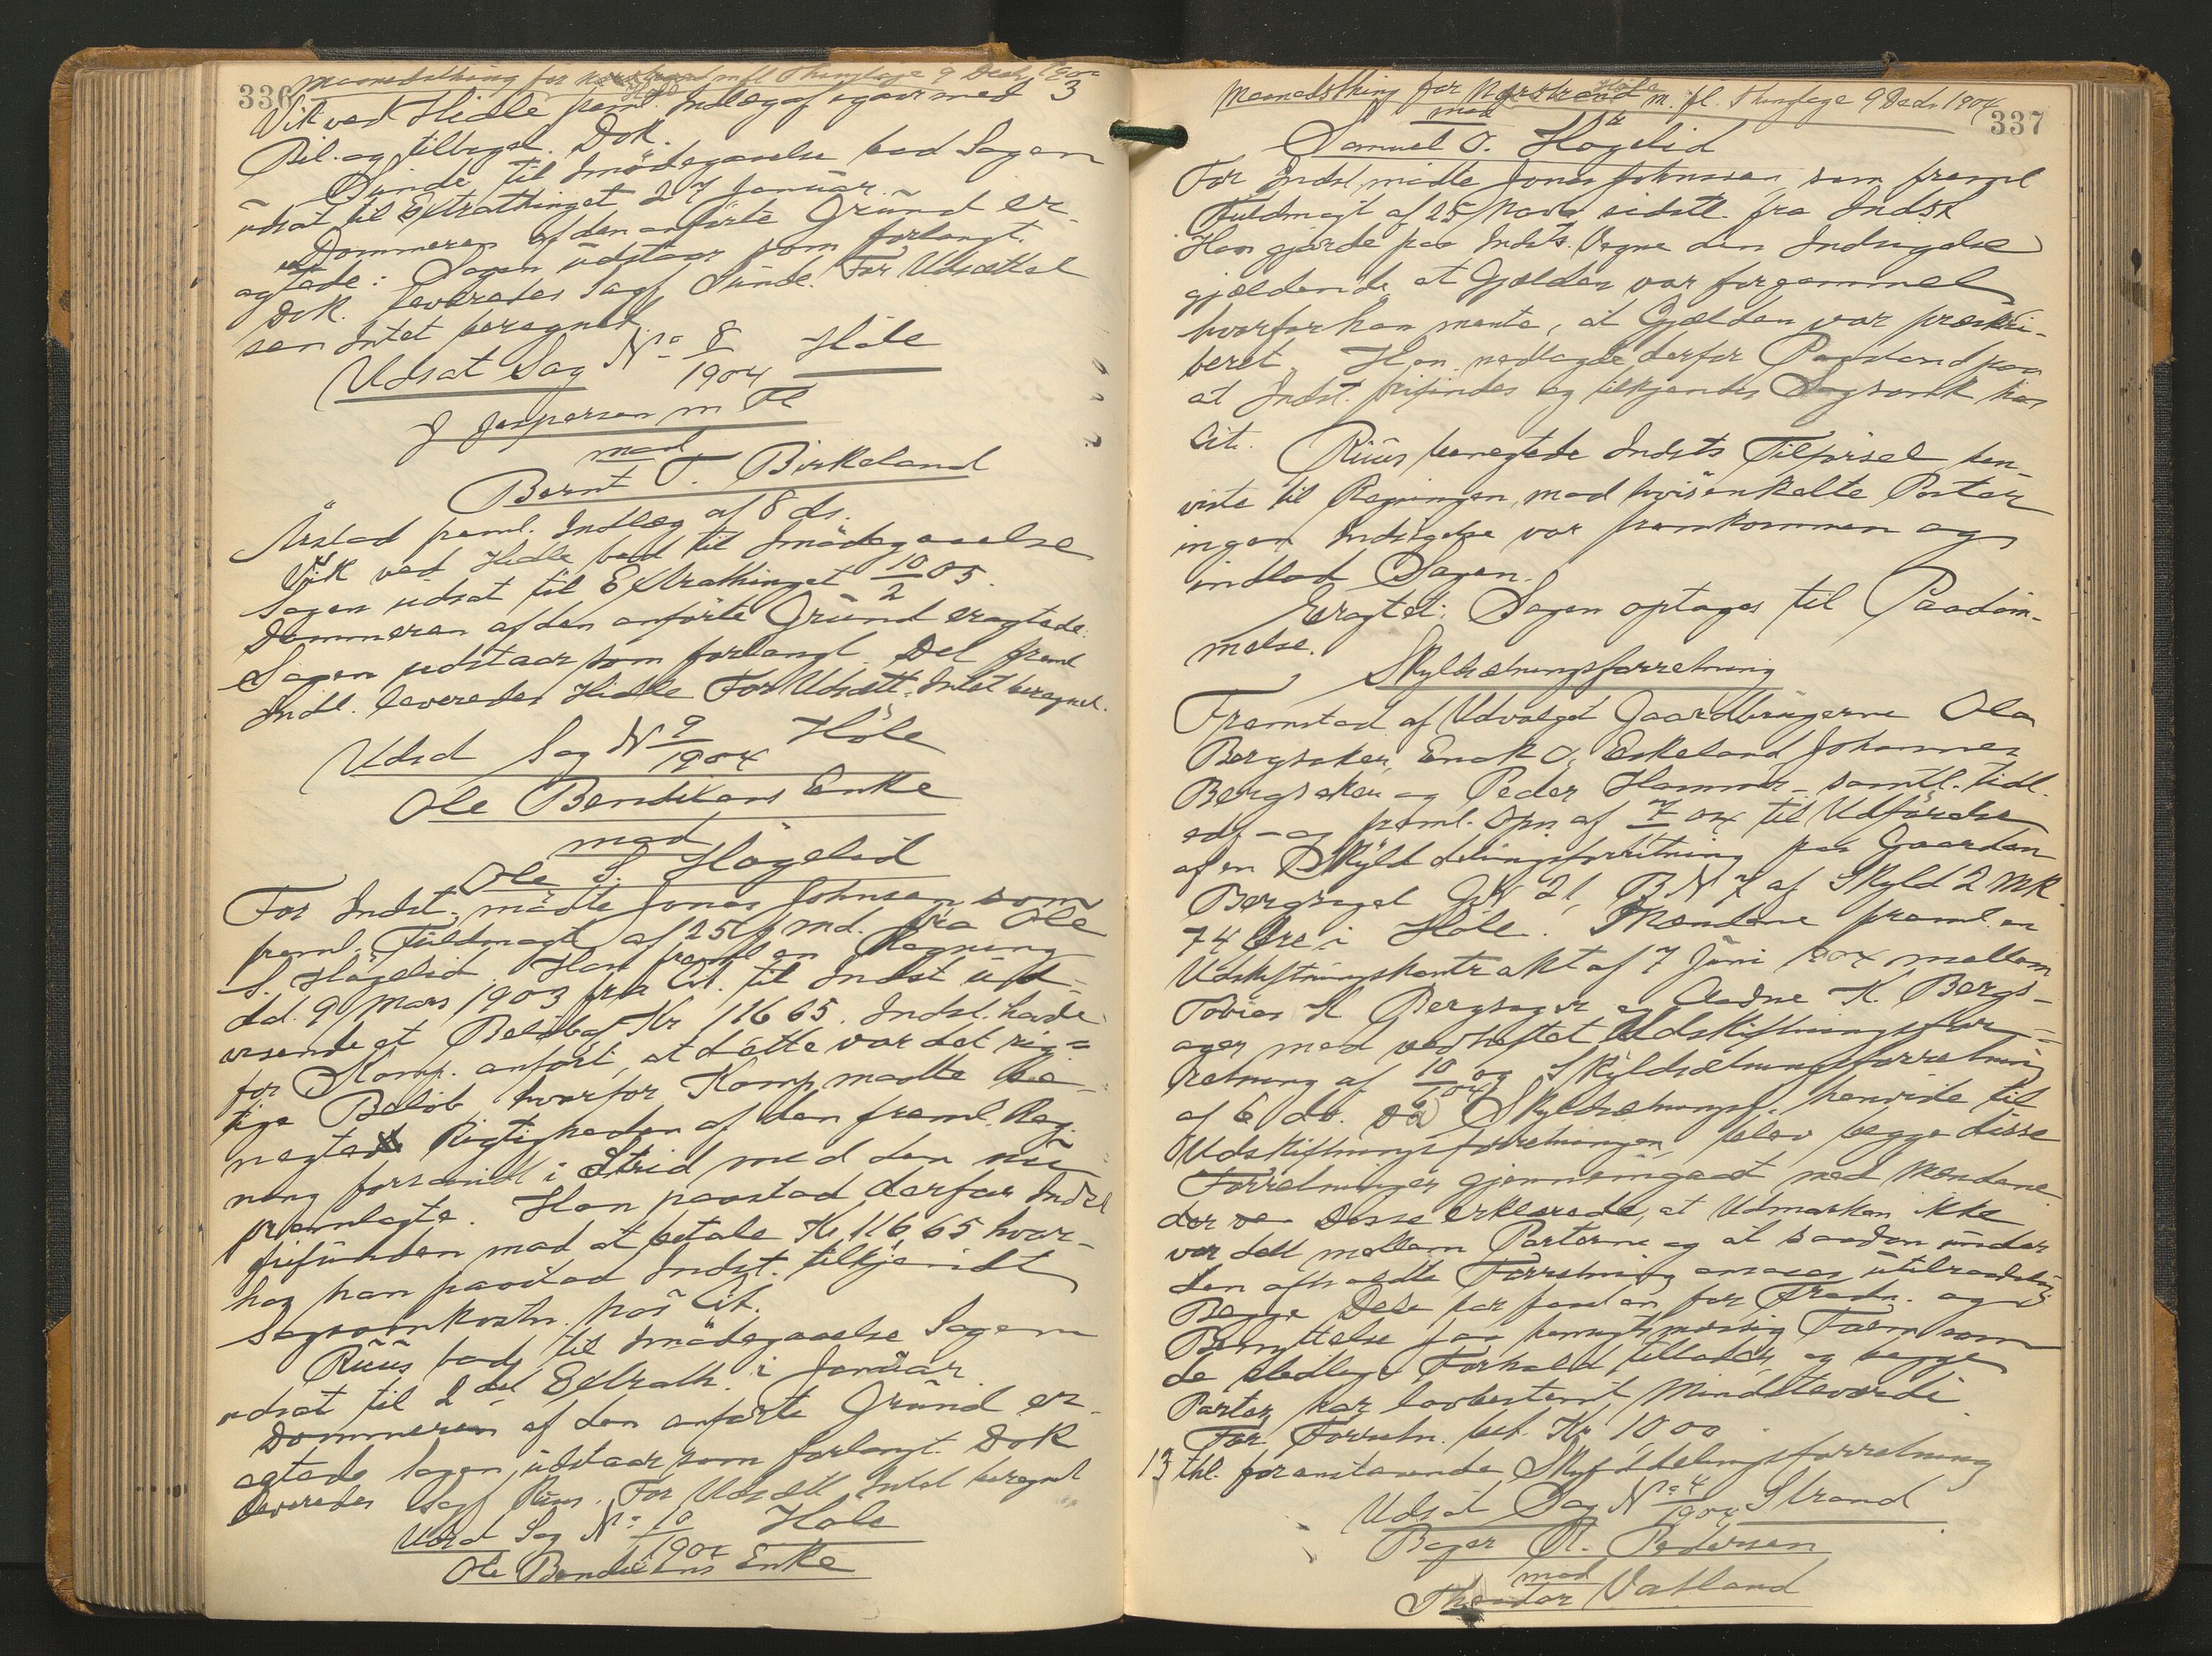 336
Maanedsthing for Nærstrand m fl Thinglage 9 Decbr 1904
Høle
3
Vik ved Hidle freml. Indlæg af igaar med
Bil. og tilbagel. Dok.
Sünde til Imödegaaelse bad Sagen
udsat til Extrathinget 27 Januar.
Dommeren af den anförte Gründ er-
agtede: Sagen udstaar som forlangt.
Dok. leveredes Sagf Sünde. For Udsættel
sen Intet beregnet.
Udsat Sag No 8/1904 Höle
J Jespersen m Fl
mod
Bernt T. Birkeland
Årstad freml. Indlæg af 8 ds.
Vik ved Hidle bad til Imödegaaelse
Sagen udsat til Extrathinget 10/2 05.
Dommeren af den anförte Gründ eragtede:
Sagen udstaar som forlangt. Det freml
Indl. leveredes Hidle For Udsætt. Intet beregnet.
Udsd Sag N 9/1904 Höle
Ole Bendiksens Enke
mod
Ole S. Högelid
For Indst. mödte Jonas Johnsen som
freml. Füldmagt af 25 f. md. fra Ole
S. Högelid. Han freml en Regning
dd. 9 Mars 1903 fra Cit. til Indst üd-
visende et Belöb af Kr 116 65. Indst. havde
for Komp. anfört, at dette var det rig-
tige Belöb hvorfor Komp maatte be-
negte Rigtigheden af den freml. Reg-
ning forsaavidt i Strid med den nü
fremlagte. Han paastod derfor Indst
frifünden mod at betale Kr 116,65 hvor-
hos han paastod Indst. tilkjendt
Sagsomkostn. hos Cit.
Rüüs bad til Imödegaaelse Sagen
udsat til 2det Extrath. i Januar.
Dommeren af den anförte Gründ er-
agtede Sagen udstaar som forlangt. Dok
leveredes Sagf Rüus. For Udsætt Intet beregnet
Udsd Sag No 10/1904 Höle
Ole Bendiksens Enke
Maanedsthing for Nærstrand m. fl. Thinglage 9 Decbr 1904
Höle
337
mod
Samuel O. Högelid
For Indst. mödte Jonas Johnsen, som freml
Fuldmagt af 25 Novbr sidstl. fra Indst
Han gjorde paa Indsts. Vegne den Indsigelse
gjældende, at Gjælden var forgammel
hvorfor han mente, at Gjælden var præskri-
beret. Han nedlagde derfor Paastand paa
at Indst. frifindes og tilkjendes Sagsomk hos
Cit.
Rüüs benegtede Indsts Tilförsel, hen-
viste til Regningen, mod hvis enkelte Poster
ingen Indsigelse var fremkommen og
indlod Sagen.
Eragtet: Sagen optages til Paadöm-
melse.
Skyldsætningsforretning
Fremstod af Udvalget Gaardbrügerne Ola
Bergsaker, Enok O. Eskeland, Johannes
Bergsaker og Peder Hammer – samtl. tidl.
edf – og freml. Opn af 04 til Udförelse
af en Skylddelingsforretning paa Gaarden
Bergsaget GN 21, BN 7 af Skyld 2 Mk
74 Øre i Höle. Mændene freml. en
Udskiftningskontrakt af 7 Jüni 1904 mellem
Tobias K Bergsager og Aadne K. Bergs-
ager med vedheftet Udskiftningsfor-
retning af 10/1904 og Skyldsætningsforretning
af 6 ds. Da Skyldsætningsf. henviste til
Udskiftningsforretningen, blev begge disse
Forretninger gjennemgaaet med Mændene
der Disse erklærede, at Udmarken ikke
var delt mellem Parterne og at saadan under
den afholdte Forretning ansaaes utilraadelig
Begge Dele har faaet en for Græsn. og
Benyttelse saa hensigtsmæssig Form som
de stedlige Forhold tillader, og begge
Parter har lovbestemt Mindsteværdi.
For Forretn. bet. Kr 10 00
13 thl. foranstaaende Skylddelingsforretning
Udsat Sag No 4/1904 Strand
Bager R. Pedersen
mod
Theodor Vatland